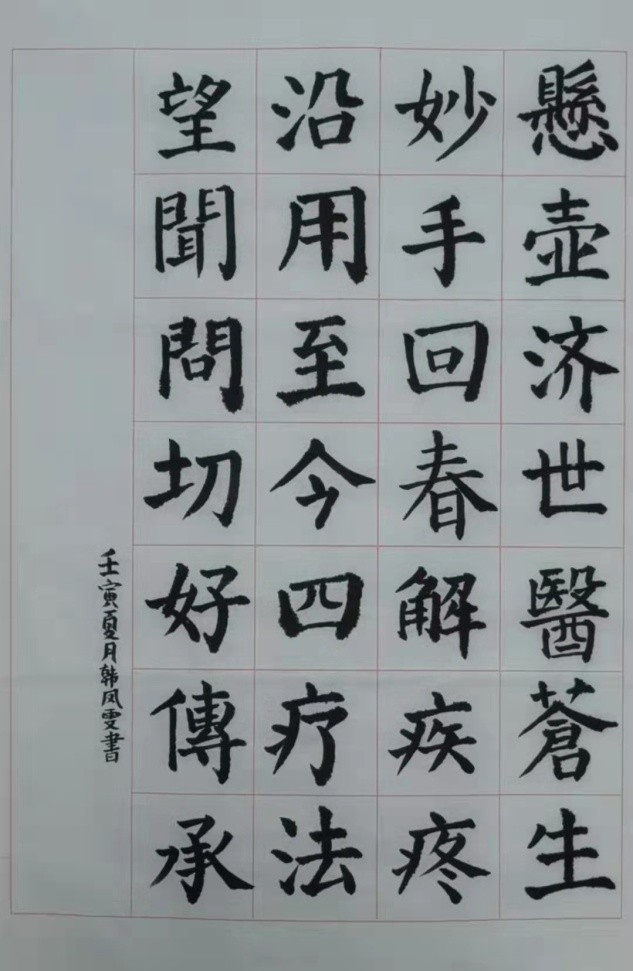 懸壺济世醫蒼生
妙手回春解疾疼
沿用至今四疗法
望聞問切好傳承
壬寅夏月韩凤雯書